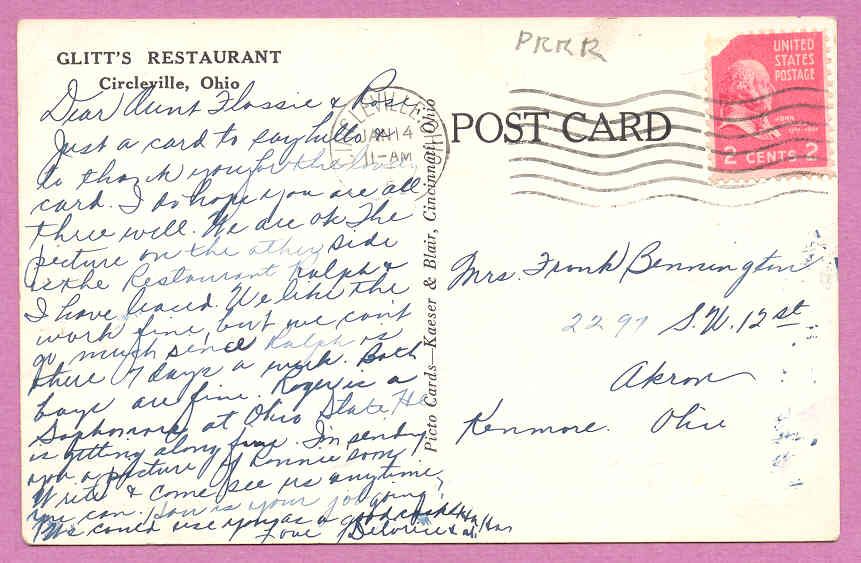 GLITT'S RESTAURANT
Circleville, Ohio
Dear Aunt Flossie & Rose
Just a card to say hello &
to thank you for the
card. I do hope you are all
three well. We are ok. The
picture on the other side
is the Restaurant Ralph &
I have leased. We like the
work fine, but we can't
go much since Ralph is
there 7 days a week. Both
boys are fine. Roger is a
Sophomore at Ohio State He
is getting along fine. I'm sending
you a picture of Ronnie soon
Write & come see us anytime
you can. How is your job going?
We could use you as a good cook Ha Ha
Love
Picto Cards—Kaeser & Blair, Cincinnati, Ohio
PRRR
POST CARD
CIRCLEVILLE OHIO
JAN 14
11-AM
UNITED
STATES
POSTAGE
JOHN
2 CENTS 2
Mrs. Frank Bennington
2297 S.W. 12 st
Akron
Kenmore. Ohio